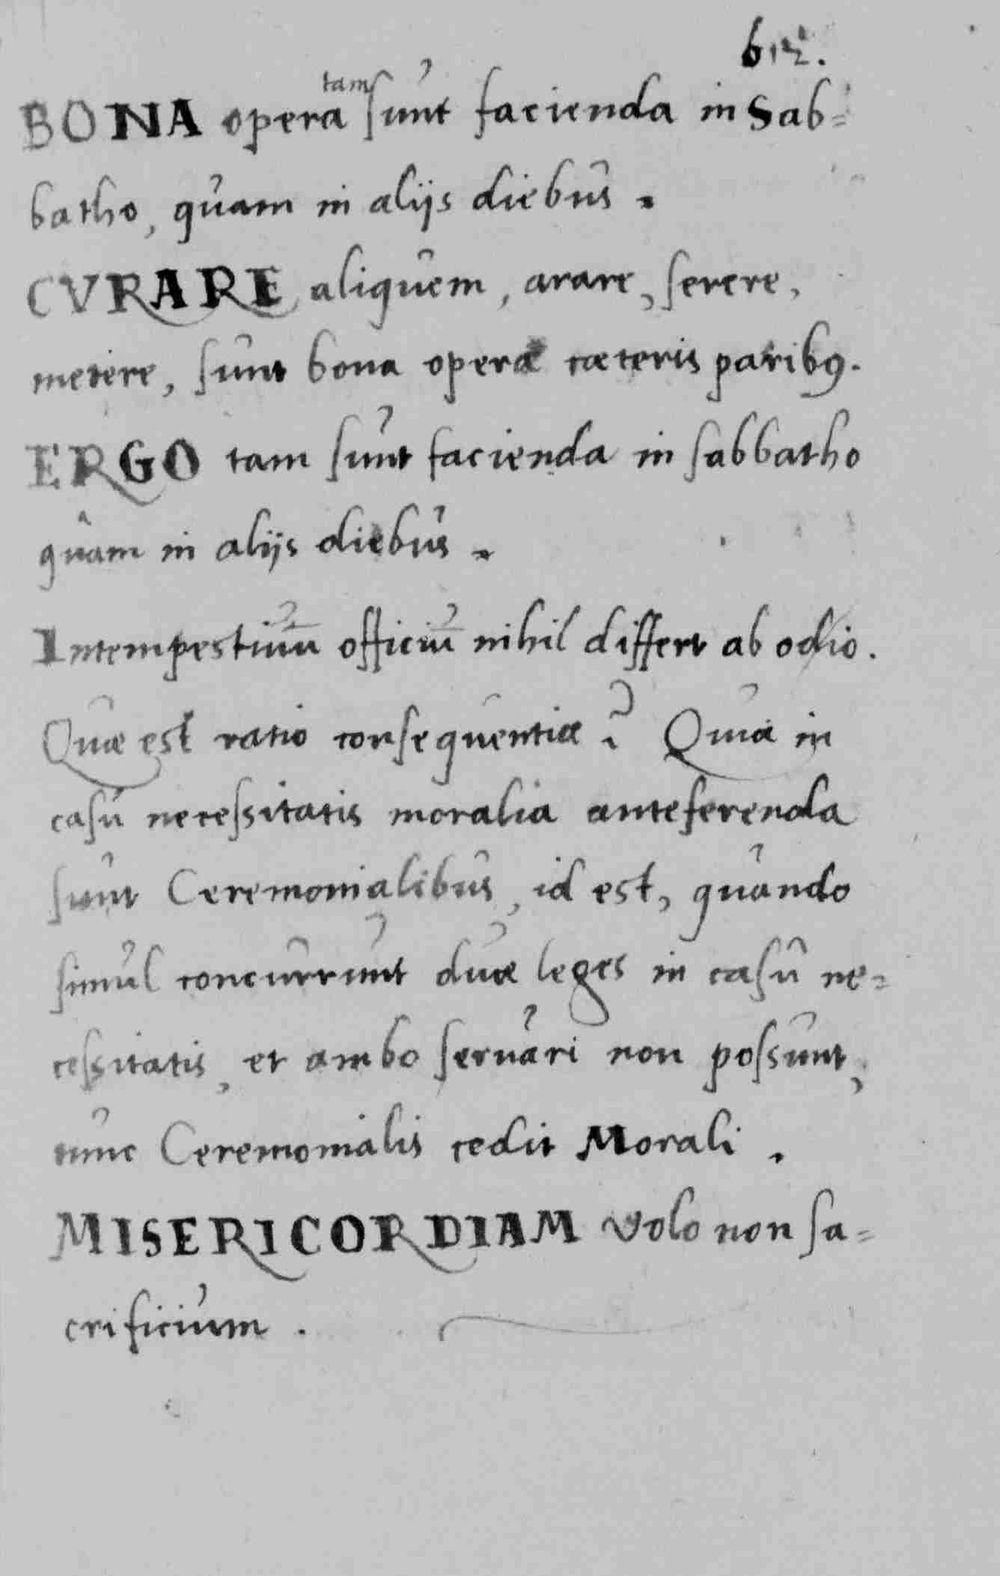 612.
BONA opera tam sunt facienda in Sab=
batho, quam in aliis diebus.
CVRARE aliquem, arare, serere,
metere, sunt bona opera cæteris paribꝰ.
ERGO tam sunt facienda in sabbatho
quàm in alijs diebus.
Intempestiuū officiū nihil differt ab odio.
Quæ est ratio consequentiæ? Quia in
casu necessitatis moralia anteferenda
sunt Ceremonialibus, id est, quando
simul concurrunt duæ leges in casu ne=
cessitatis, et ambo seruari non possunt,
tunc Ceremonialis cedit Morali.
MISERICORDIAM volo non sa=
crificium.